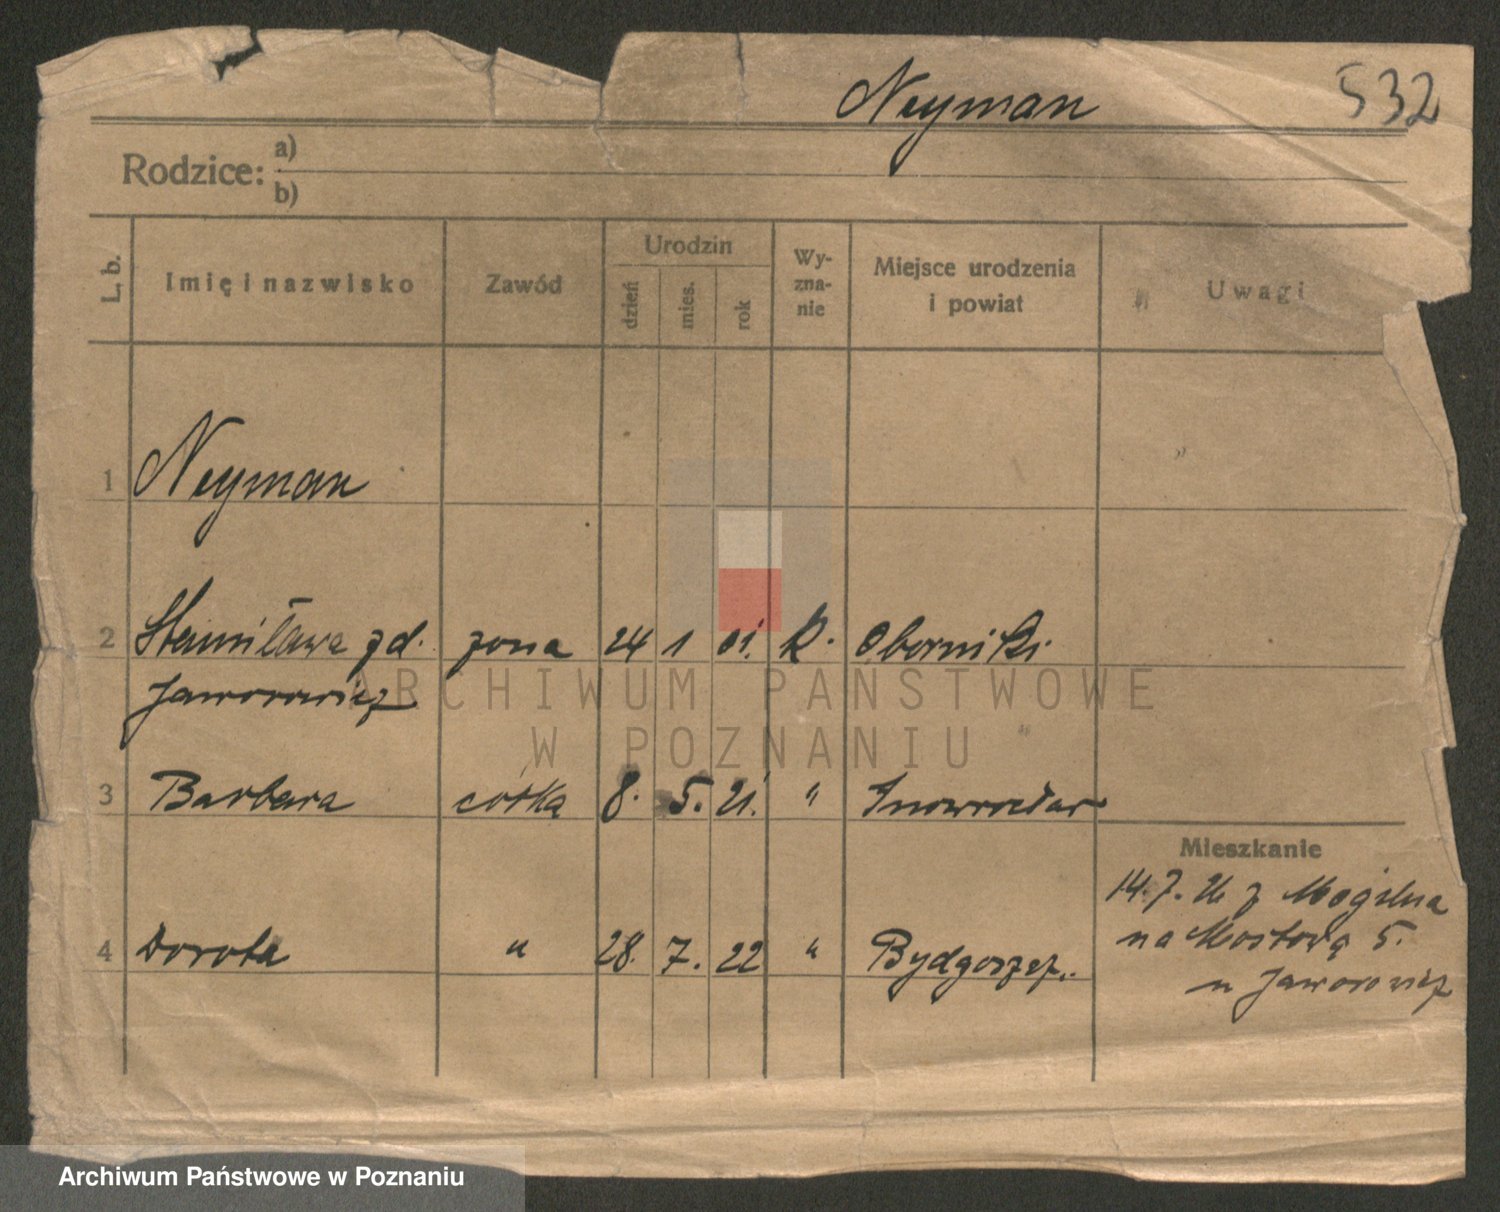 Neyman 532
Rodzice: a)
b)
L. b. Imię i nazwisko Zawód Urodzin dzień mies. rok Wy-zna-nie Miejsce urodzenia i powiat Uwagi
1 Neyman
2 Stanisława zd. żona 24 1 01. k. Oborniki
Jaworowicz
3 Barbara córka 8. 5. 21. " Inowrocław
4 Dorota " 28. 7. 22 " Bydgoszcz
Mieszkanie
14. 7. z Mogilna
na Mostową 5.
u Jaworowicz
ARCHIWUM PAŃSTWOWE
W POZNANIU
Archiwum Państwowe w Poznaniu